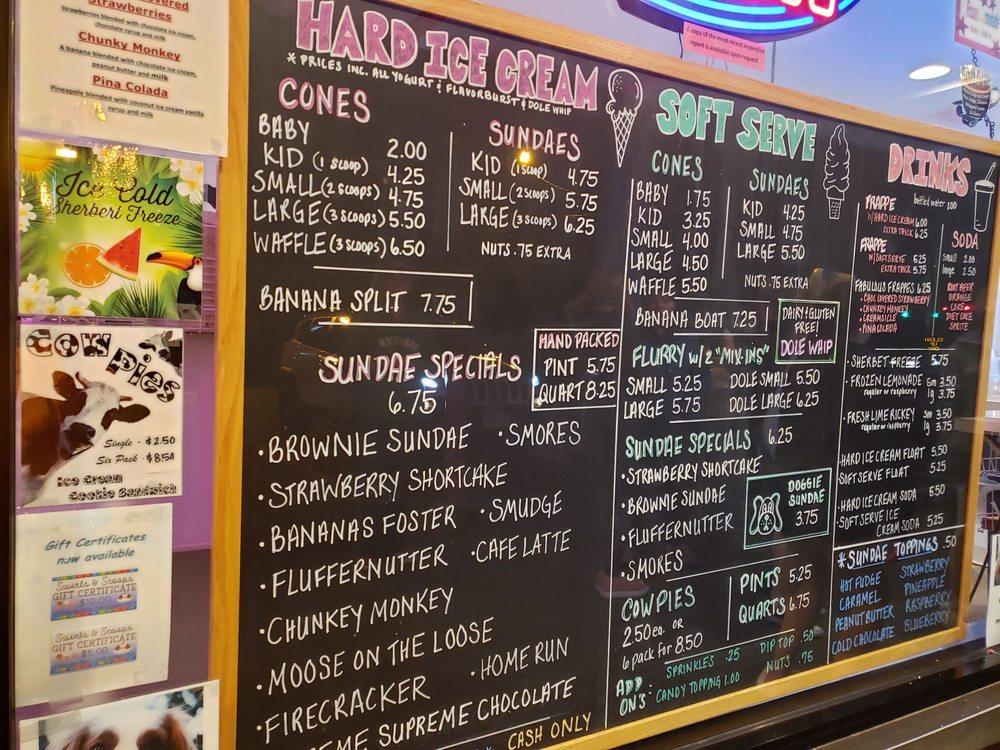 Strawberries
Strawberries blended with chocolate ice cream,
chocolate syrup and milk
Chunky Monkey
A banana blended with chocolate ice cream,
peanut butter and milk
Pina Colada
Pineapple blended with coconut ice cream vanilla
syrup and milk
Ice Cold
Sherbert Freeze
Cow Pies
Single - $2.50
Six Pack - $8.50
Ice Cream
Cookie Sandwich
Gift Certificates
now available
Swirls & Scoops
GIFT CERTIFICATE
$10.00
Swirls & Scoops
GIFT CERTIFICATE
$5.00
A copy of the most recent inspection
report is available upon request
HARD ICE CREAM
* PRICES INC. ALL YOGURT & FLAVORBURST & DOLE WHIP
CONES
BABY 2.00
KID (1 SCOOP) 4.25
SMALL (2 SCOOPS) 4.75
LARGE (3 SCOOPS) 5.50
WAFFLE (3 SCOOPS) 6.50
SUNDAES
KID (1 SCOOP) 4.75
SMALL (2 SCOOPS) 5.75
LARGE (3 SCOOPS) 6.25
NUTS .75 EXTRA
BANANA SPLIT 7.75
HAND PACKED
PINT 5.75
QUART 8.25
SUNDAE SPECIALS
6.75
• BROWNIE SUNDAE
• SMORES
• STRAWBERRY SHORTCAKE
• BANANAS FOSTER
• SMUDGE
• FLUFFERNUTTER
• CAFE LATTE
• CHUNKEY MONKEY
• MOOSE ON THE LOOSE
• FIRECRACKER
• HOME RUN
SUPREME CHOCOLATE
CASH ONLY
SOFT SERVE
CONES
BABY 1.75
KID 3.25
SMALL 4.00
LARGE 4.50
WAFFLE 5.50
SUNDAES
KID 4.25
SMALL 4.75
LARGE 5.50
NUTS .75 EXTRA
BANANA BOAT 7.25
DAIRY & GLUTEN
FREE!
DOLE WHIP
FLURRY W/ 2 "MIX-INS"
SMALL 5.25 DOLE SMALL 5.50
LARGE 5.75 DOLE LARGE 6.25
SUNDAE SPECIALS 6.25
• STRAWBERRY SHORTCAKE
• BROWNIE SUNDAE
• FLUFFERNUTTER
• SMORES
DOGGIE
SUNDAE
3.75
COWPIES
2.50 ea. or
6 pack for 8.50
PINTS 5.25
QUARTS 6.75
ADD
ON'S:
SPRINKLES .25 DIP TOP .50
CANDY TOPPING 1.00 NUTS .75
DRINKS
Bottled water 1.00
FRAPPE
W/ HARD ICE CREAM 6.00
EXTRA THICK 6.25
FRAPPE
W/ SOFT SERVE 5.25
EXTRA THICK 5.75
FABULUS FRAPPES 6.25
• CHOC COVERED STRAWBERRY
• CHUNKY MONKEY
• CREAMSICLE
• PINA COLADA
SODA
Small 2.00
large 2.50
ROOT BEER
ORANGE
COKE
DIET COKE
SPRITE
• SHERBET FREEZE 5.75
• FROZEN LEMONADE sm 3.50
regular or raspberry lg 3.75
• FRESH LIME RICKEY sm 3.50
regular or raspberry lg 3.75
• HARD ICE CREAM FLOAT 5.50
SOFT SERVE FLOAT 5.25
• HARD ICE CREAM SODA 5.50
• SOFT SERVE ICE
CREAM SODA 5.25
* SUNDAE TOPPINGS .50
HOT FUDGE
CARAMEL
PEANUT BUTTER
COLD CHOCOLATE
STRAWBERRY
PINEAPPLE
RASPBERRY
BLUEBERRY